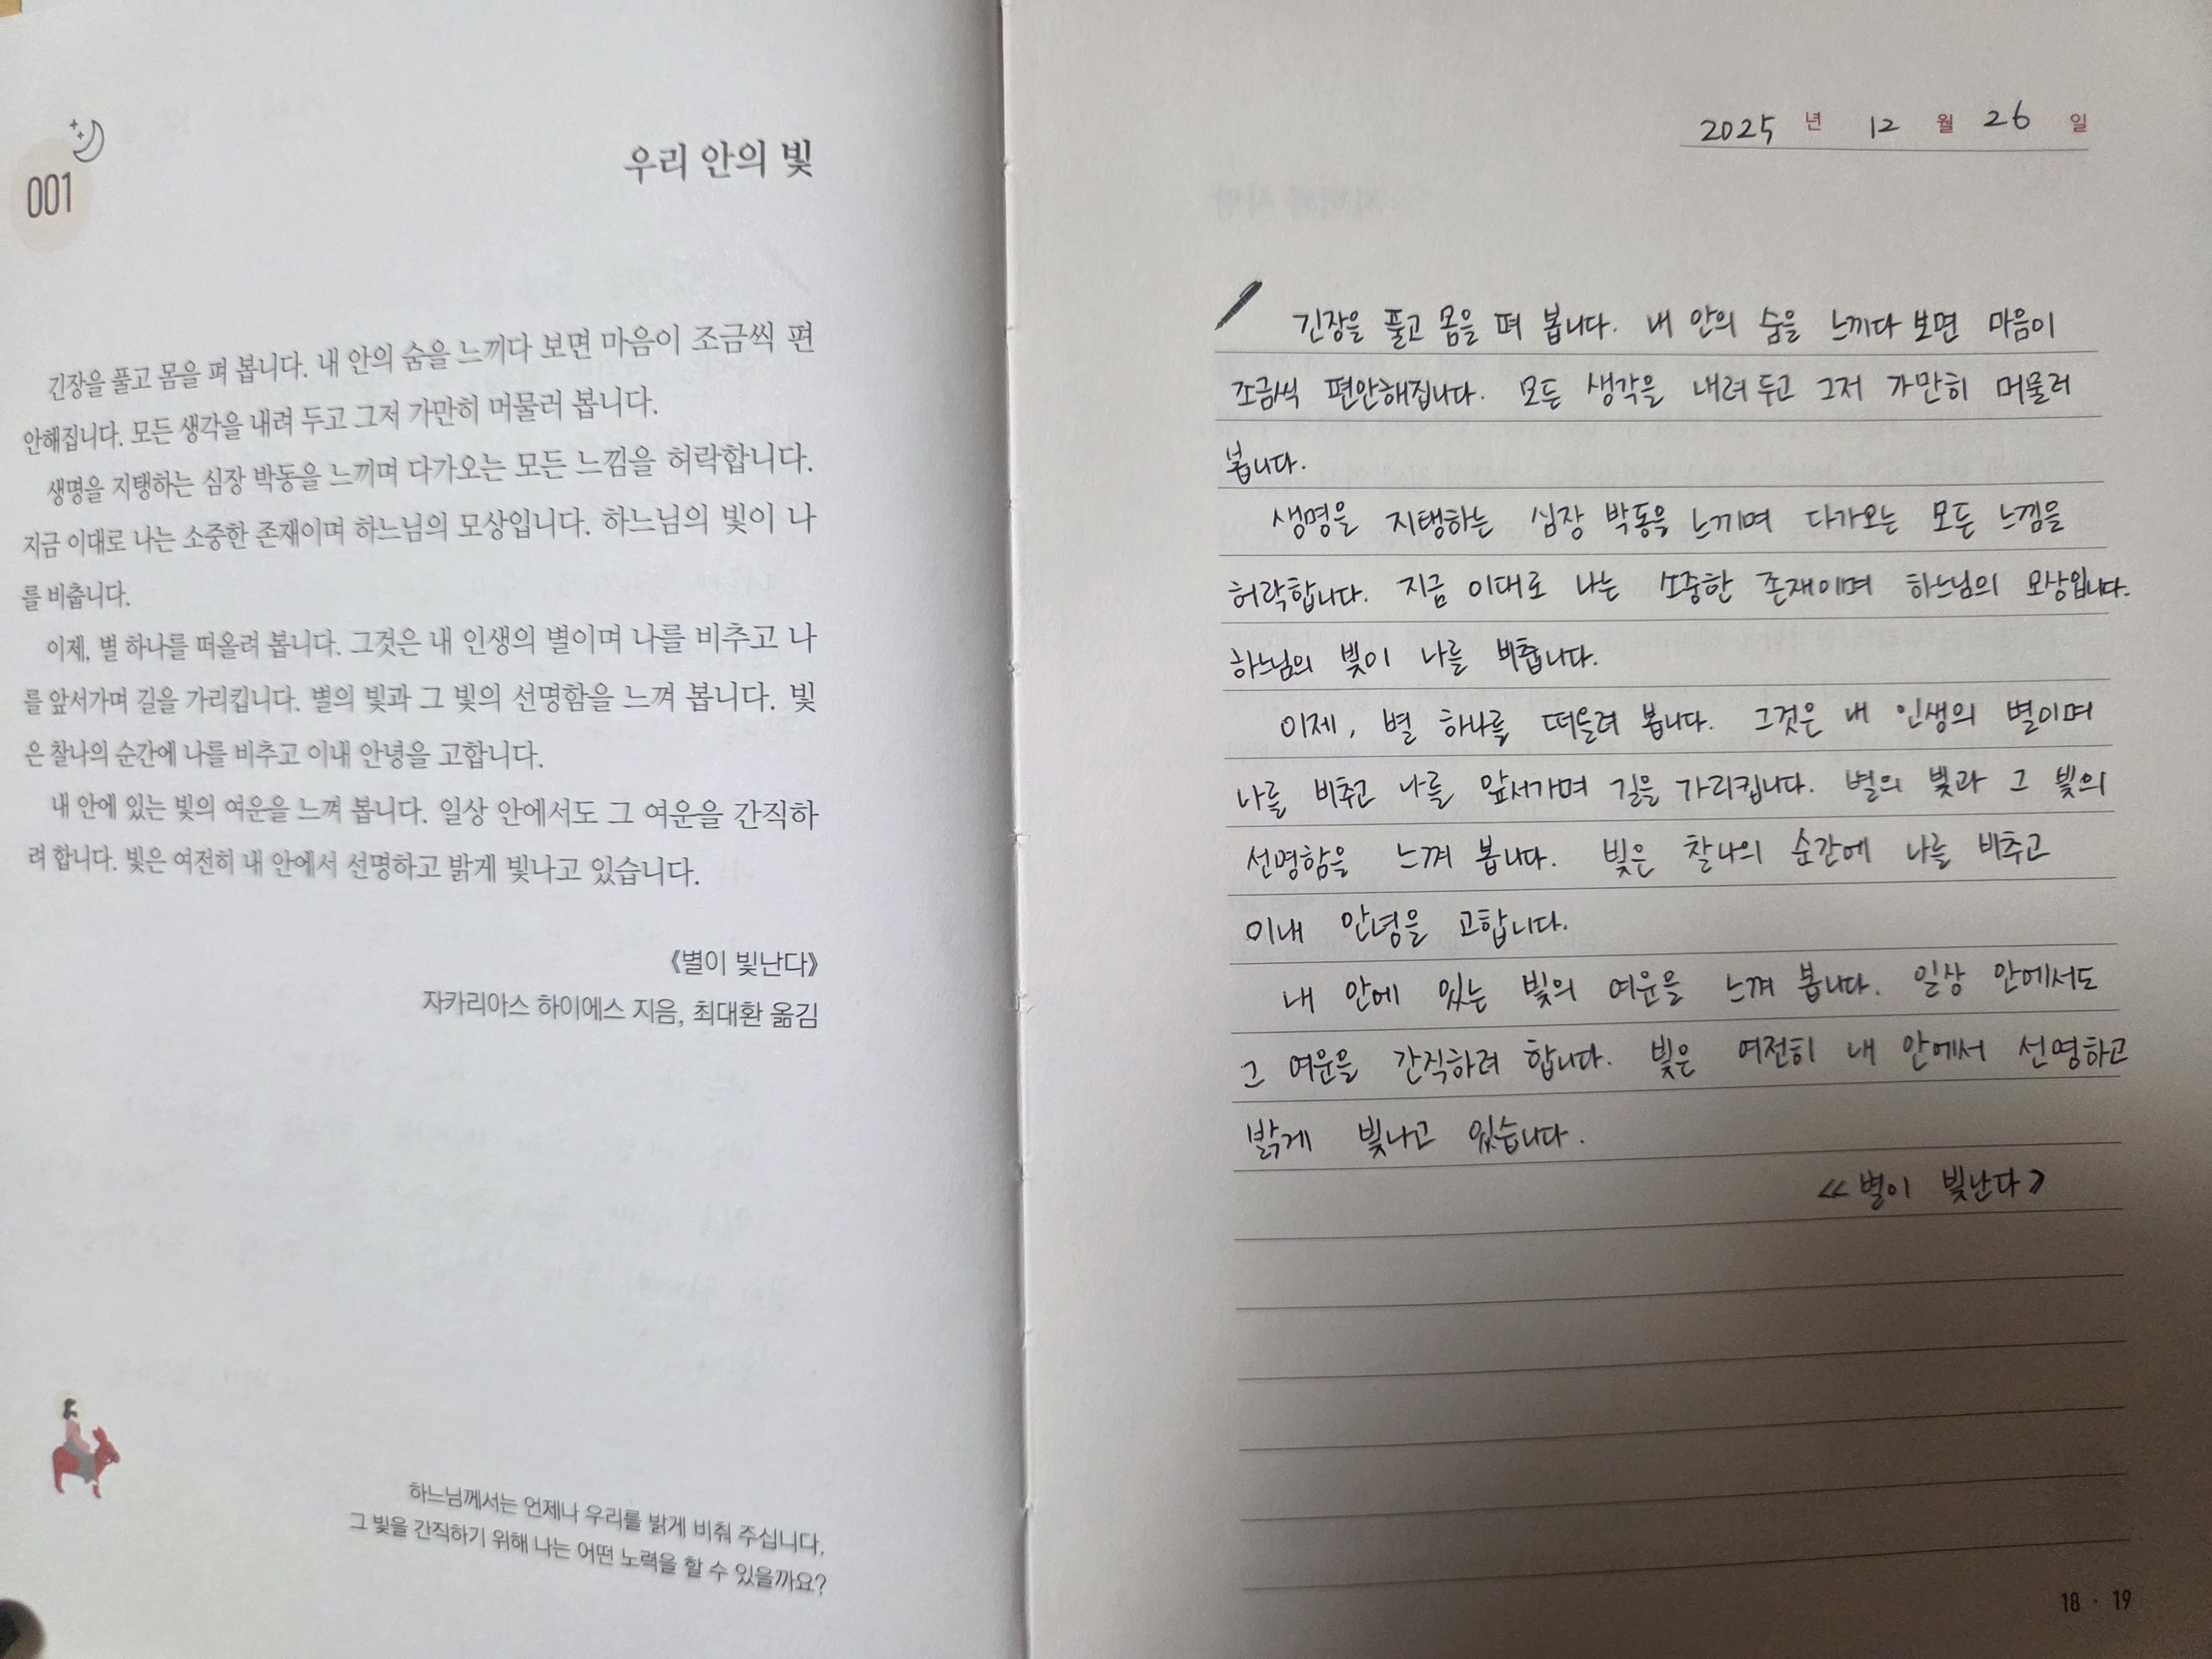 001
우리 안의 빛
긴장을 풀고 몸을 펴 봅니다. 내 안의 숨을 느끼다 보면 마음이 조금씩 편
안해집니다. 모든 생각을 내려 두고 그저 가만히 머물러 봅니다.
생명을 지탱하는 심장 박동을 느끼며 다가오는 모든 느낌을 허락합니다.
지금 이대로 나는 소중한 존재이며 하느님의 모상입니다. 하느님의 빛이 나
를 비춥니다.
이제, 별 하나를 떠올려 봅니다. 그것은 내 인생의 별이며 나를 비추고 나
를 앞서가며 길을 가리킵니다. 별의 빛과 그 빛의 선명함을 느껴 봅니다. 빛
은 찰나의 순간에 나를 비추고 이내 안녕을 고합니다.
내 안에 있는 빛의 여운을 느껴 봅니다. 일상 안에서도 그 여운을 간직하
려 합니다. 빛은 여전히 내 안에서 선명하고 밝게 빛나고 있습니다.
《별이 빛난다》
자카리아스 하이에스 지음, 최대환 옮김
하느님께서는 언제나 우리를 밝게 비춰 주십니다.
그 빛을 간직하기 위해 나는 어떤 노력을 할 수 있을까요?
2025 년 12 월 26 일
긴장을 풀고 몸을 펴 봅니다. 내 안의 숨을 느끼다 보면 마음이
조금씩 편안해집니다. 모든 생각을 내려 두고 그저 가만히 머물러
봅니다.
생명을 지탱하는 심장 박동을 느끼며 다가오는 모든 느낌을
허락합니다. 지금 이대로 나는 소중한 존재이며 하느님의 모상입니다.
하느님의 빛이 나를 비춥니다.
이제, 별 하나를 떠올려 봅니다. 그것은 내 인생의 별이며
나를 비추고 나를 앞서가며 길을 가리킵니다. 별의 빛과 그 빛의
선명함을 느껴 봅니다. 빛은 찰나의 순간에 나를 비추고
이내 안녕을 고합니다.
내 안에 있는 빛의 여운을 느껴 봅니다. 일상 안에서도
그 여운을 간직하려 합니다. 빛은 여전히 내 안에서 선명하고
밝게 빛나고 있습니다.
《별이 빛난다》
18 · 19